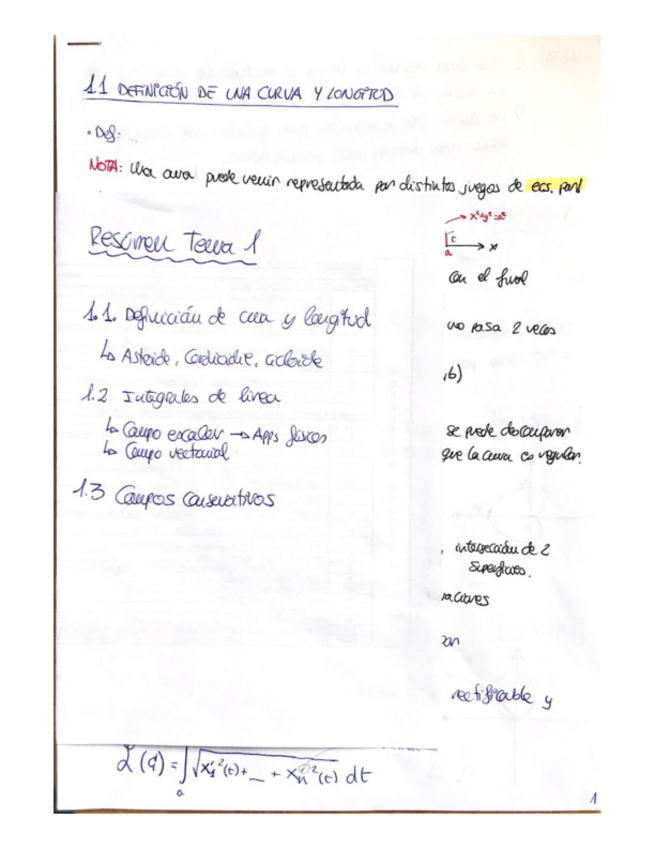 1.1 DEFINICIÓN DE UNA CURVA Y LONGITUD
• Def: ...
NOTA: Una curva puede venir representada por distintos juegos de ecs. par
x²+y²=a²
t
a
x
Resumen Tema 1
con el final
1.1. Definición de curva y longitud
no pasa 2 veces
↳ Astroide, Cardioide, cicloide
,b)
1.2 Integrales de línea
↳ Campo escalar → Apps físicas
se puede descomponer
↳ Campo vectorial
que la curva es regular.
1.3 Campos conservativos
, intersección de 2
superficies.
raciones
rectificable y
L(C) = ∫ₐ √x₁'²(t)+ _ + xₙ'²(t) dt
1